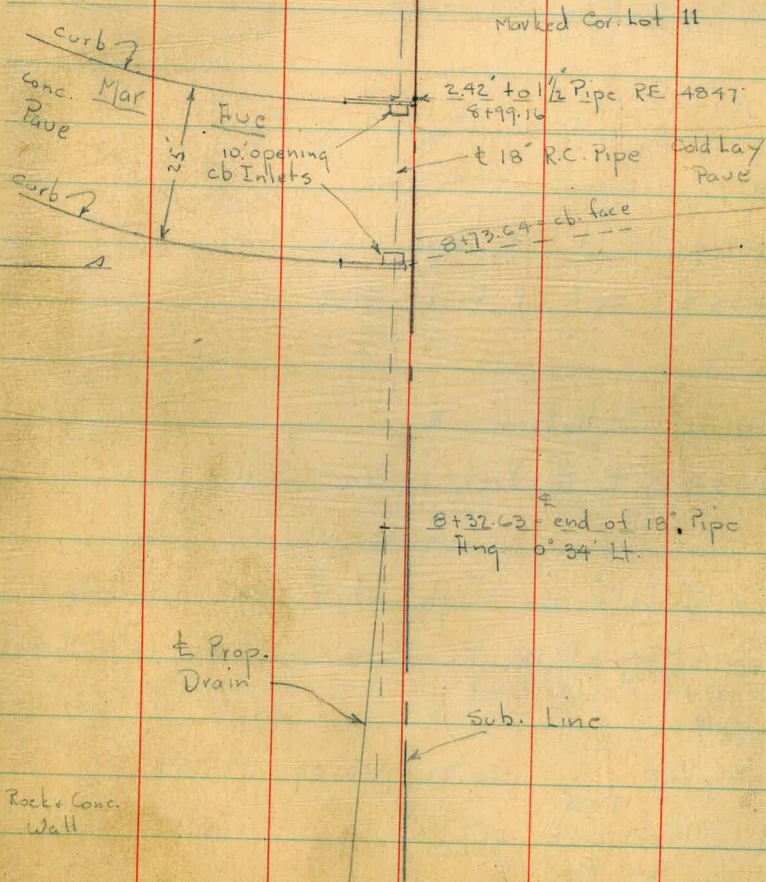 Marked Cor. Lot 11
curb
conc. Mar Ave
Pave
2.42' to 1 1/2" Pipe RE 4847
8+99.16
10' opening
cb Inlets
25'
℄ 18" R.C. Pipe
Cold Lay
Pave
curb
8+73.64 = cb. face
℄
8+32.63 = end of 18" Pipe
Ang 0° 34' Lt.
℄ Prop.
Drain
Sub. Line
Rock & Conc.
Wall